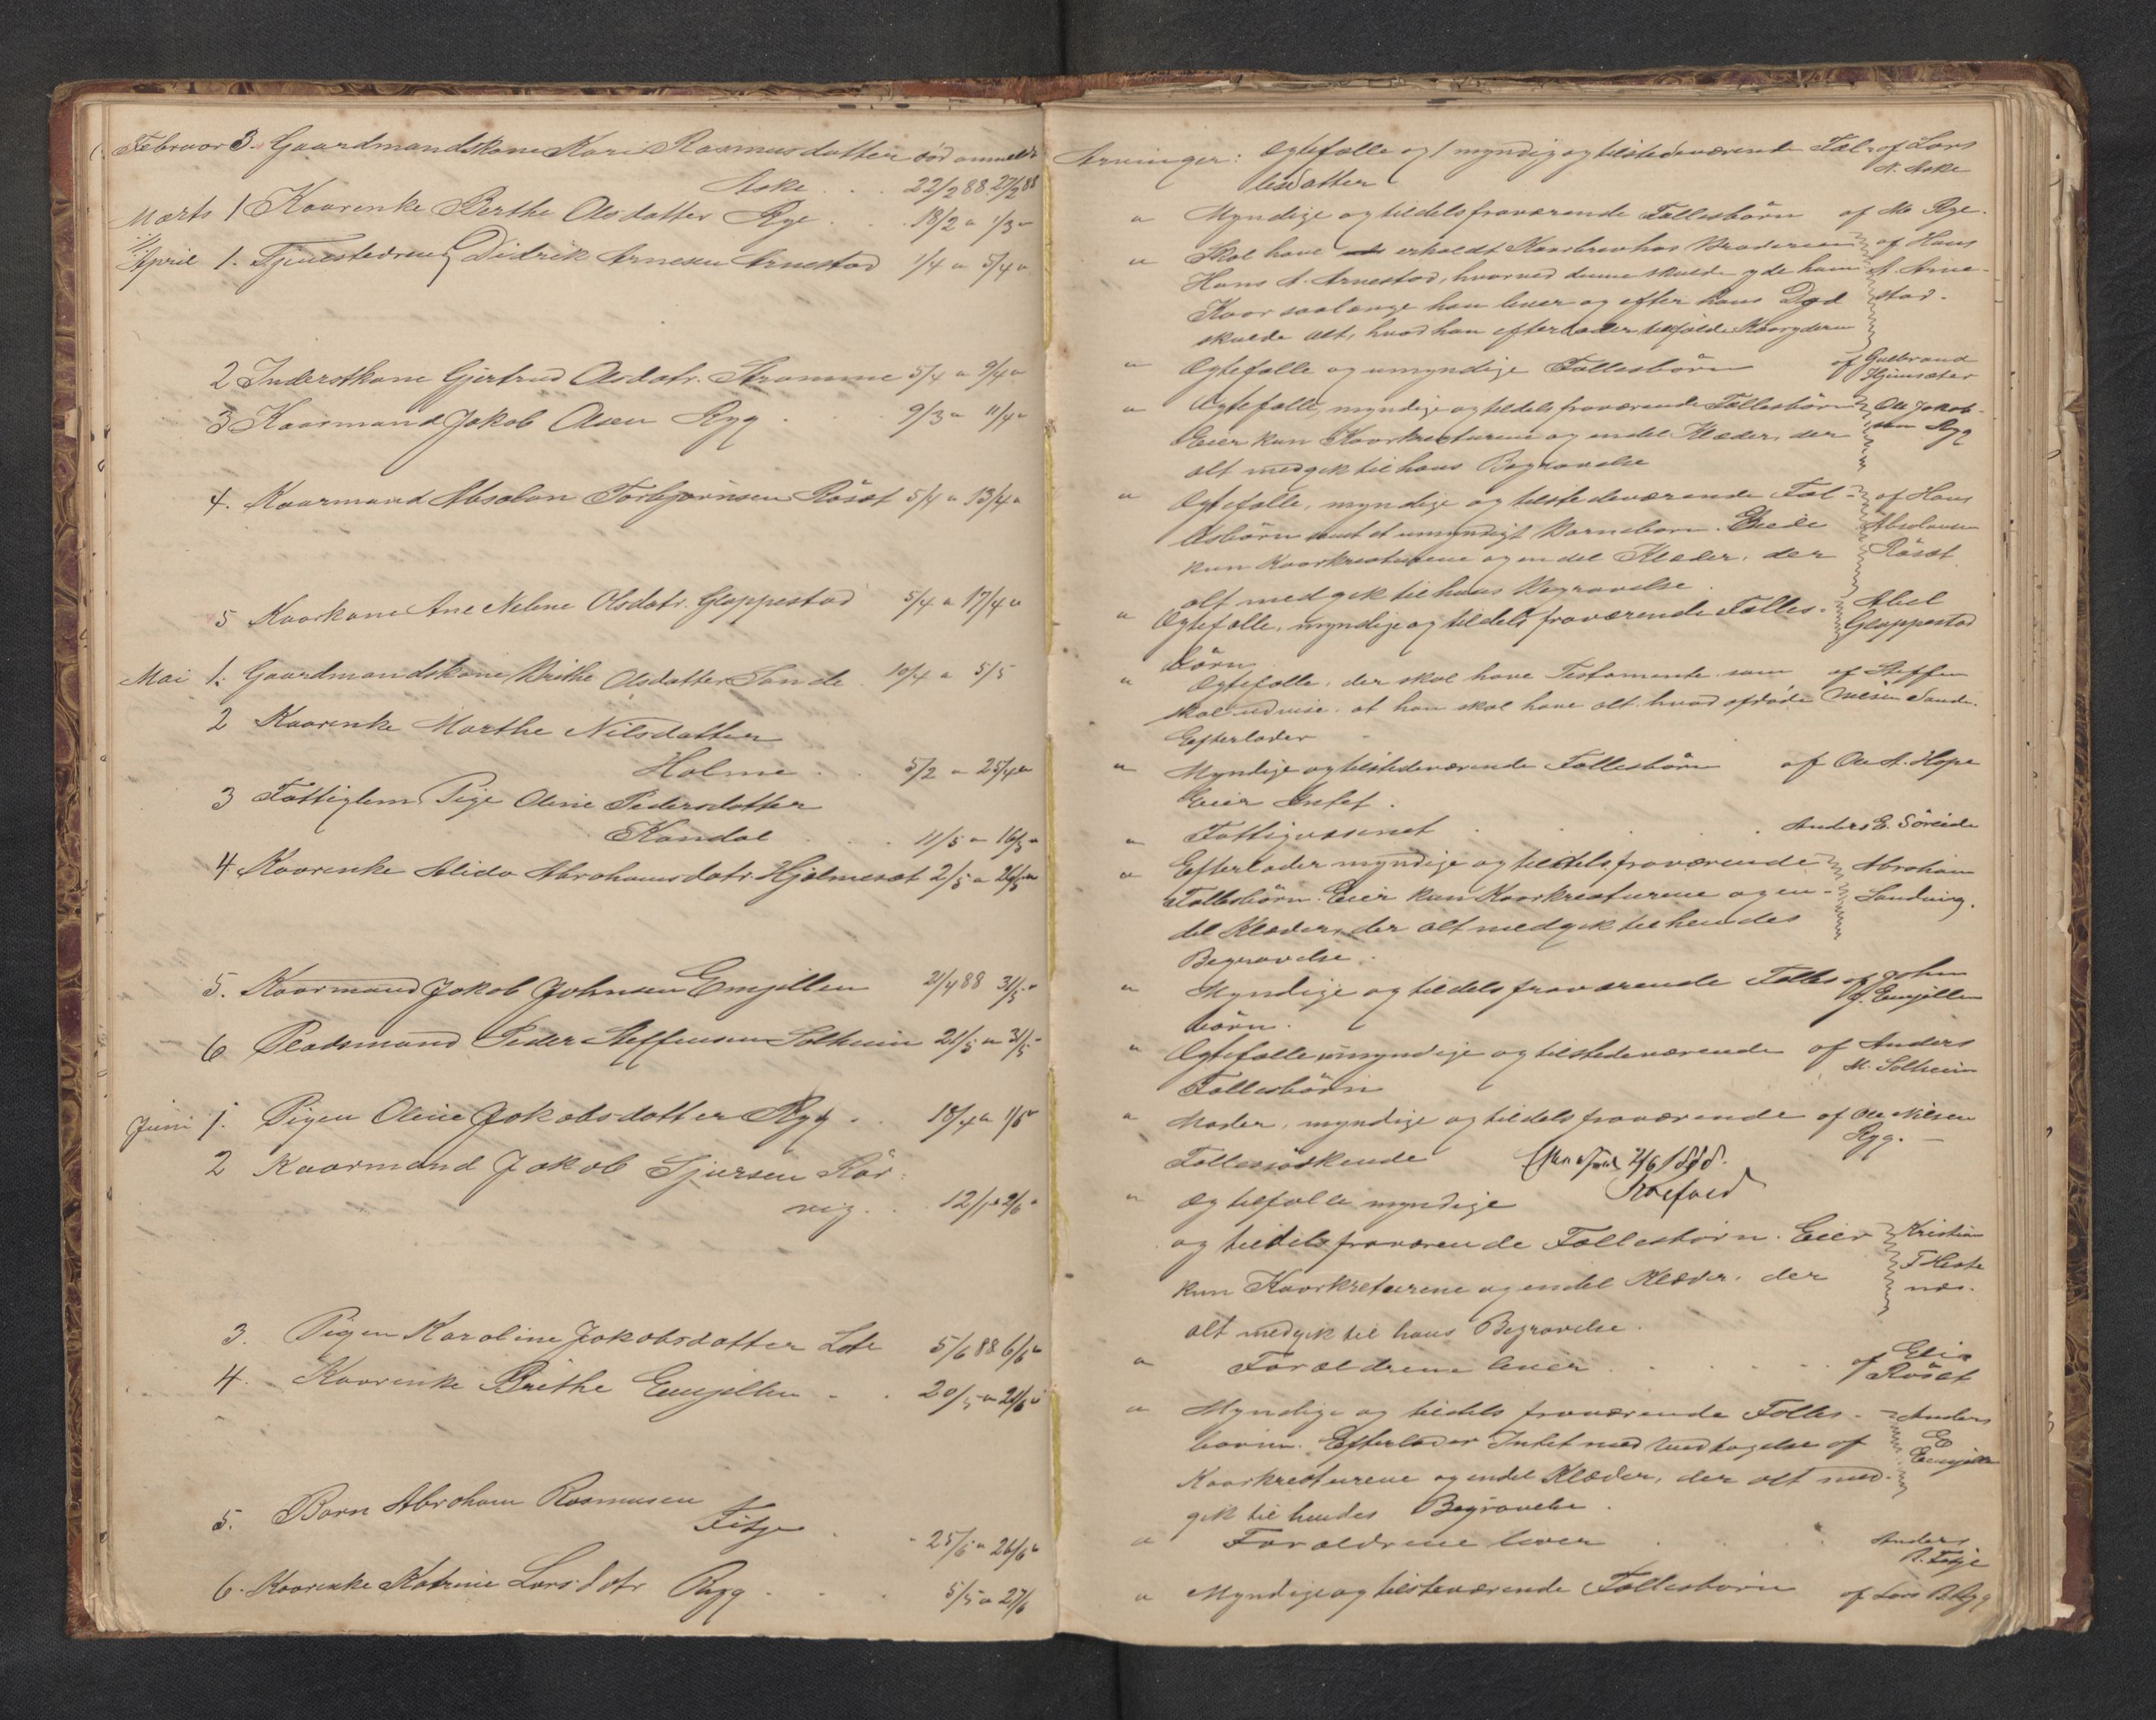 Februar 3. Gaardmandskone Kari Rasmusdatter død anmeldt
Aske . . . 22/2 88 27/2 88
Marts 1 Kaarenke Berthe Olsdatter Ryg . . 18/2 " 1/3 "
April 1. Tjenestedreng Didrik Arnesen Arnestad 1/4 " 5/4 "
2 Inderstkone Gjertrud Olsdatr. Stramme 5/4 " 9/4 "
3 Kaarmand Jakob Olsen Ryg . . 9/3 " 11/4 "
4. Kaarmand Absalon Torbjørnsen Røset 5/4 " 13/4 "
5 Kaarkone Ane Neline Olsdatr. Gloppestad 5/4 " 17/4 "
Mai 1. Gaardmandskone Brithe Olsdatter Sande 10/4 " 5/5
2 Kaarenke Marthe Nilsdatter
Holme . . 5/2 " 25/4 "
3 Fattiglem Pige Oline Pedersdatter
Kandal . . . 11/5 " 16/5 "
4 Kaarenke Alida Abrahamsdatr. Hjelmeset 2/5 " 26/5 "
5. Kaarmand Jakob Johnsen Emjellen 21/4 88 31/5 "
6 Pladsmand Peder Steffensen Solheim 21/5 " 31/5 "
Juni 1. Pigen Oline Jakobsdatter Ryg . 18/4 " 1/6 "
2 Kaarmand Jakob Sjursen Rør-
vig . . 12/1 " 2/6 "
3. Pigen Karoline Jakobsdatter Lote 5/6 88 6/6 "
4. Kaarenke Brithe Emjellen . . 20/5 " 21/6 "
5. Barn Abraham Rasmusen
Fitje . . 25/6 " 26/6 "
6. Kaarenke Katrine Larsdatr Ryg . . . 5/5 " 27/6
Arvinger: Ægtefælle og 1 myndig og tilstedeværende Fæl- af Lars
lesdatter A. Aske
" Myndige og tildels fraværende Fællesbørn af Ryg.
" Skal have erholdt Kaarbrev hos Broderen af Hans
Hans A. Arnestad, hvorved denne skulde yde ham A. Arne-
Kaar saalænge han lever og efter hans Død stad.
skulde alt, hvad han efterlader tilfalde Kaaryderen
" Ægtefælle og umyndige Fællesbørn af Gulbrand
Hjemsæter
" Ægtefælle, myndige og tildels fraværende Fællesbørn Ole Jakob-
Eier kun Kaarkreaturene og endel Klæder, der sen Ryg
alt medgik til hans Begravelse
" Ægtefælle, myndige og tilstedeværende Fæl- af Hans
lesbørn samt et umyndigt Barnebarn. Eiede Absalonsen
kun Kaarkreaturene og en del Klæder, der Røset
alt medgik til hans Begravelse.
" Ægtefælle, myndige og tildels fraværende Fælles- Abel
børn Gloppestad
" Ægtefælle, der skal have Testamente som af Steffen
skal udvise at han skal have alt hvad afdøde Nilsen Sande.
Efterlader
" Myndige og tilstedeværende Fællesbørn af Ole A. Hope
Eier Intet.
" Fattigvæsenet . . . . Anders E. Søreide
" Efterlader myndige og tildels fraværende Abraham
Fællesbørn. Eier kun Kaarkreaturene og en- Sandvig.
del Klæder, der alt medgik til hendes
Begravelse.
" Myndige og tildels fraværende Fælles af John
børn. J. Emjellen
" Ægtefælle umyndige og tilstedeværende af Anders
Fællesbørn M. Solheim
" Moder, myndige og tildels fraværende af Ole Nilsen
Fællessøskende Ryg. —
2/6 1888.
Koefoed
" Ægtefælle myndige
og tildels fraværende Fællesbørn. Eier Kristian
kun Kaarkreturene og endel Klæder, der T Heste
alt medgik til hans Begravelse. næs.
" Forældrene lever . . . . af Elias
Røset
" Myndige og tildels fraværende Fælles- Anders
børn. Efterlader Intet med Undtagelse af E
Kaarkreaturene og endel Klæder, der alt med- Emjellen
gik til hendes Begravelse.
" Forældrene lever . . . Anders
R. Fitje
" Myndige og tilsteværende Fællesbørn af Lars B. Ryg